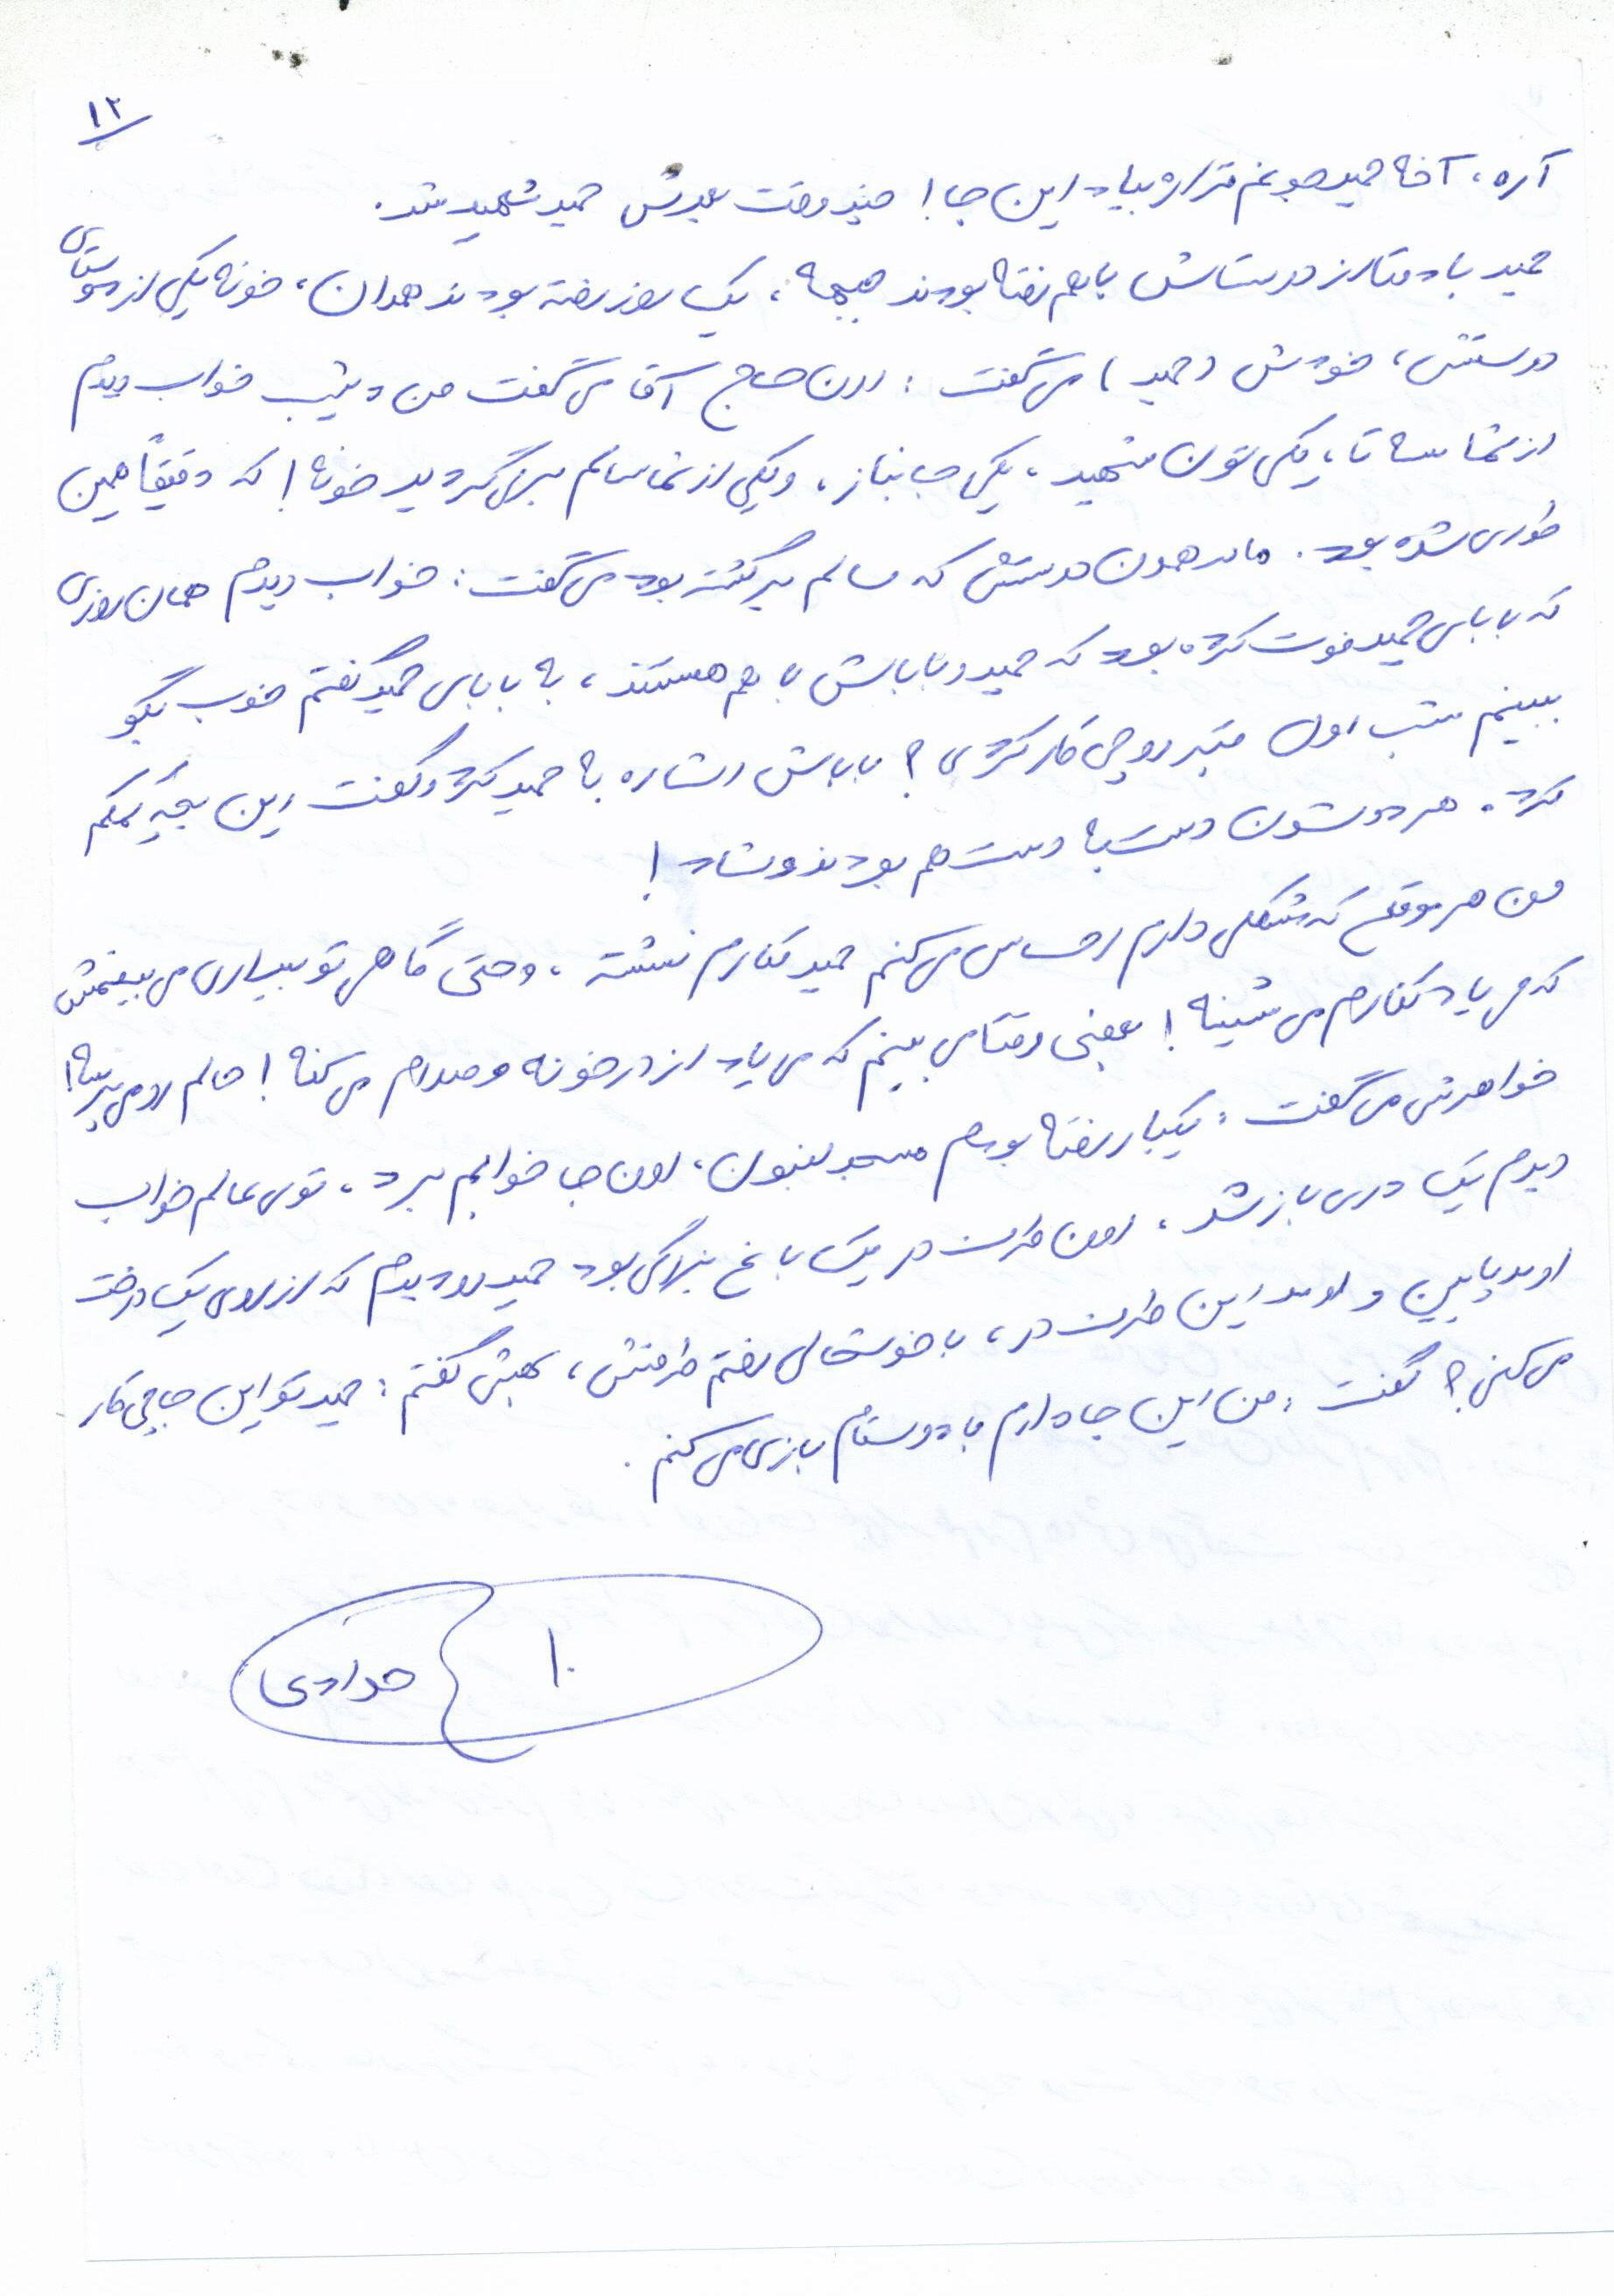 ۱۲
آره، آخه حمید جونم قراره بیاد این جا! چند وقت بعدش حمید شهید شد.
حمید با دو تا از دوستاش با هم رفته بودند جبهه، یک روز رفته بودند همدان، خونه یکی از دوستای
دوستش، خودش (حمید) می گفت: اون حاج آقا می گفت من دیشب خواب دیدم
از شما سه تا، یکی تون شهید، یکی جانباز، و یکی از شما سالم برمی گردید خونه! که دقیقاً همین
طوری شده بود. مادر همون دوستش که سالم برگشته بود می گفت: خواب دیدم همان روزی
که بابای حمید فوت کرده بود که حمید و باباش با هم هستند، به بابای حمید گفتم خوب بگو
ببینم شب اول قبر رو چی کار کردی؟ باباش اشاره به حمید کرد و گفت این بچه کمکم
کرد. هر دوشون دست به دست هم بودند و شاد!
من هر موقع که مشکلی دارم احساس می کنم حمید کنارم نشسته، و حتی گاهی تو بیداری می بینمش
که می یاد کنارم می شینه! بعضی وقتا می بینم که می یاد از در خونه و صدام می کنه! حالم رو می پرسه!
خواهرش می گفت: یکبار رفته بودم مسجد لنبون، اون جا خوابم برد، توی عالم خواب
دیدم یک دری باز شد، اون طرف در یک باغ بزرگی بود حمید رو دیدم که از روی یک درخت
اومد پایین و اومد این طرف در، با خوشحالی رفتم طرفش، بهش گفتم: حمید تو این جا چی کار
می کنی؟ گفت: من این جا دارم با دوستام بازی می کنم.
۱۰ حدادی